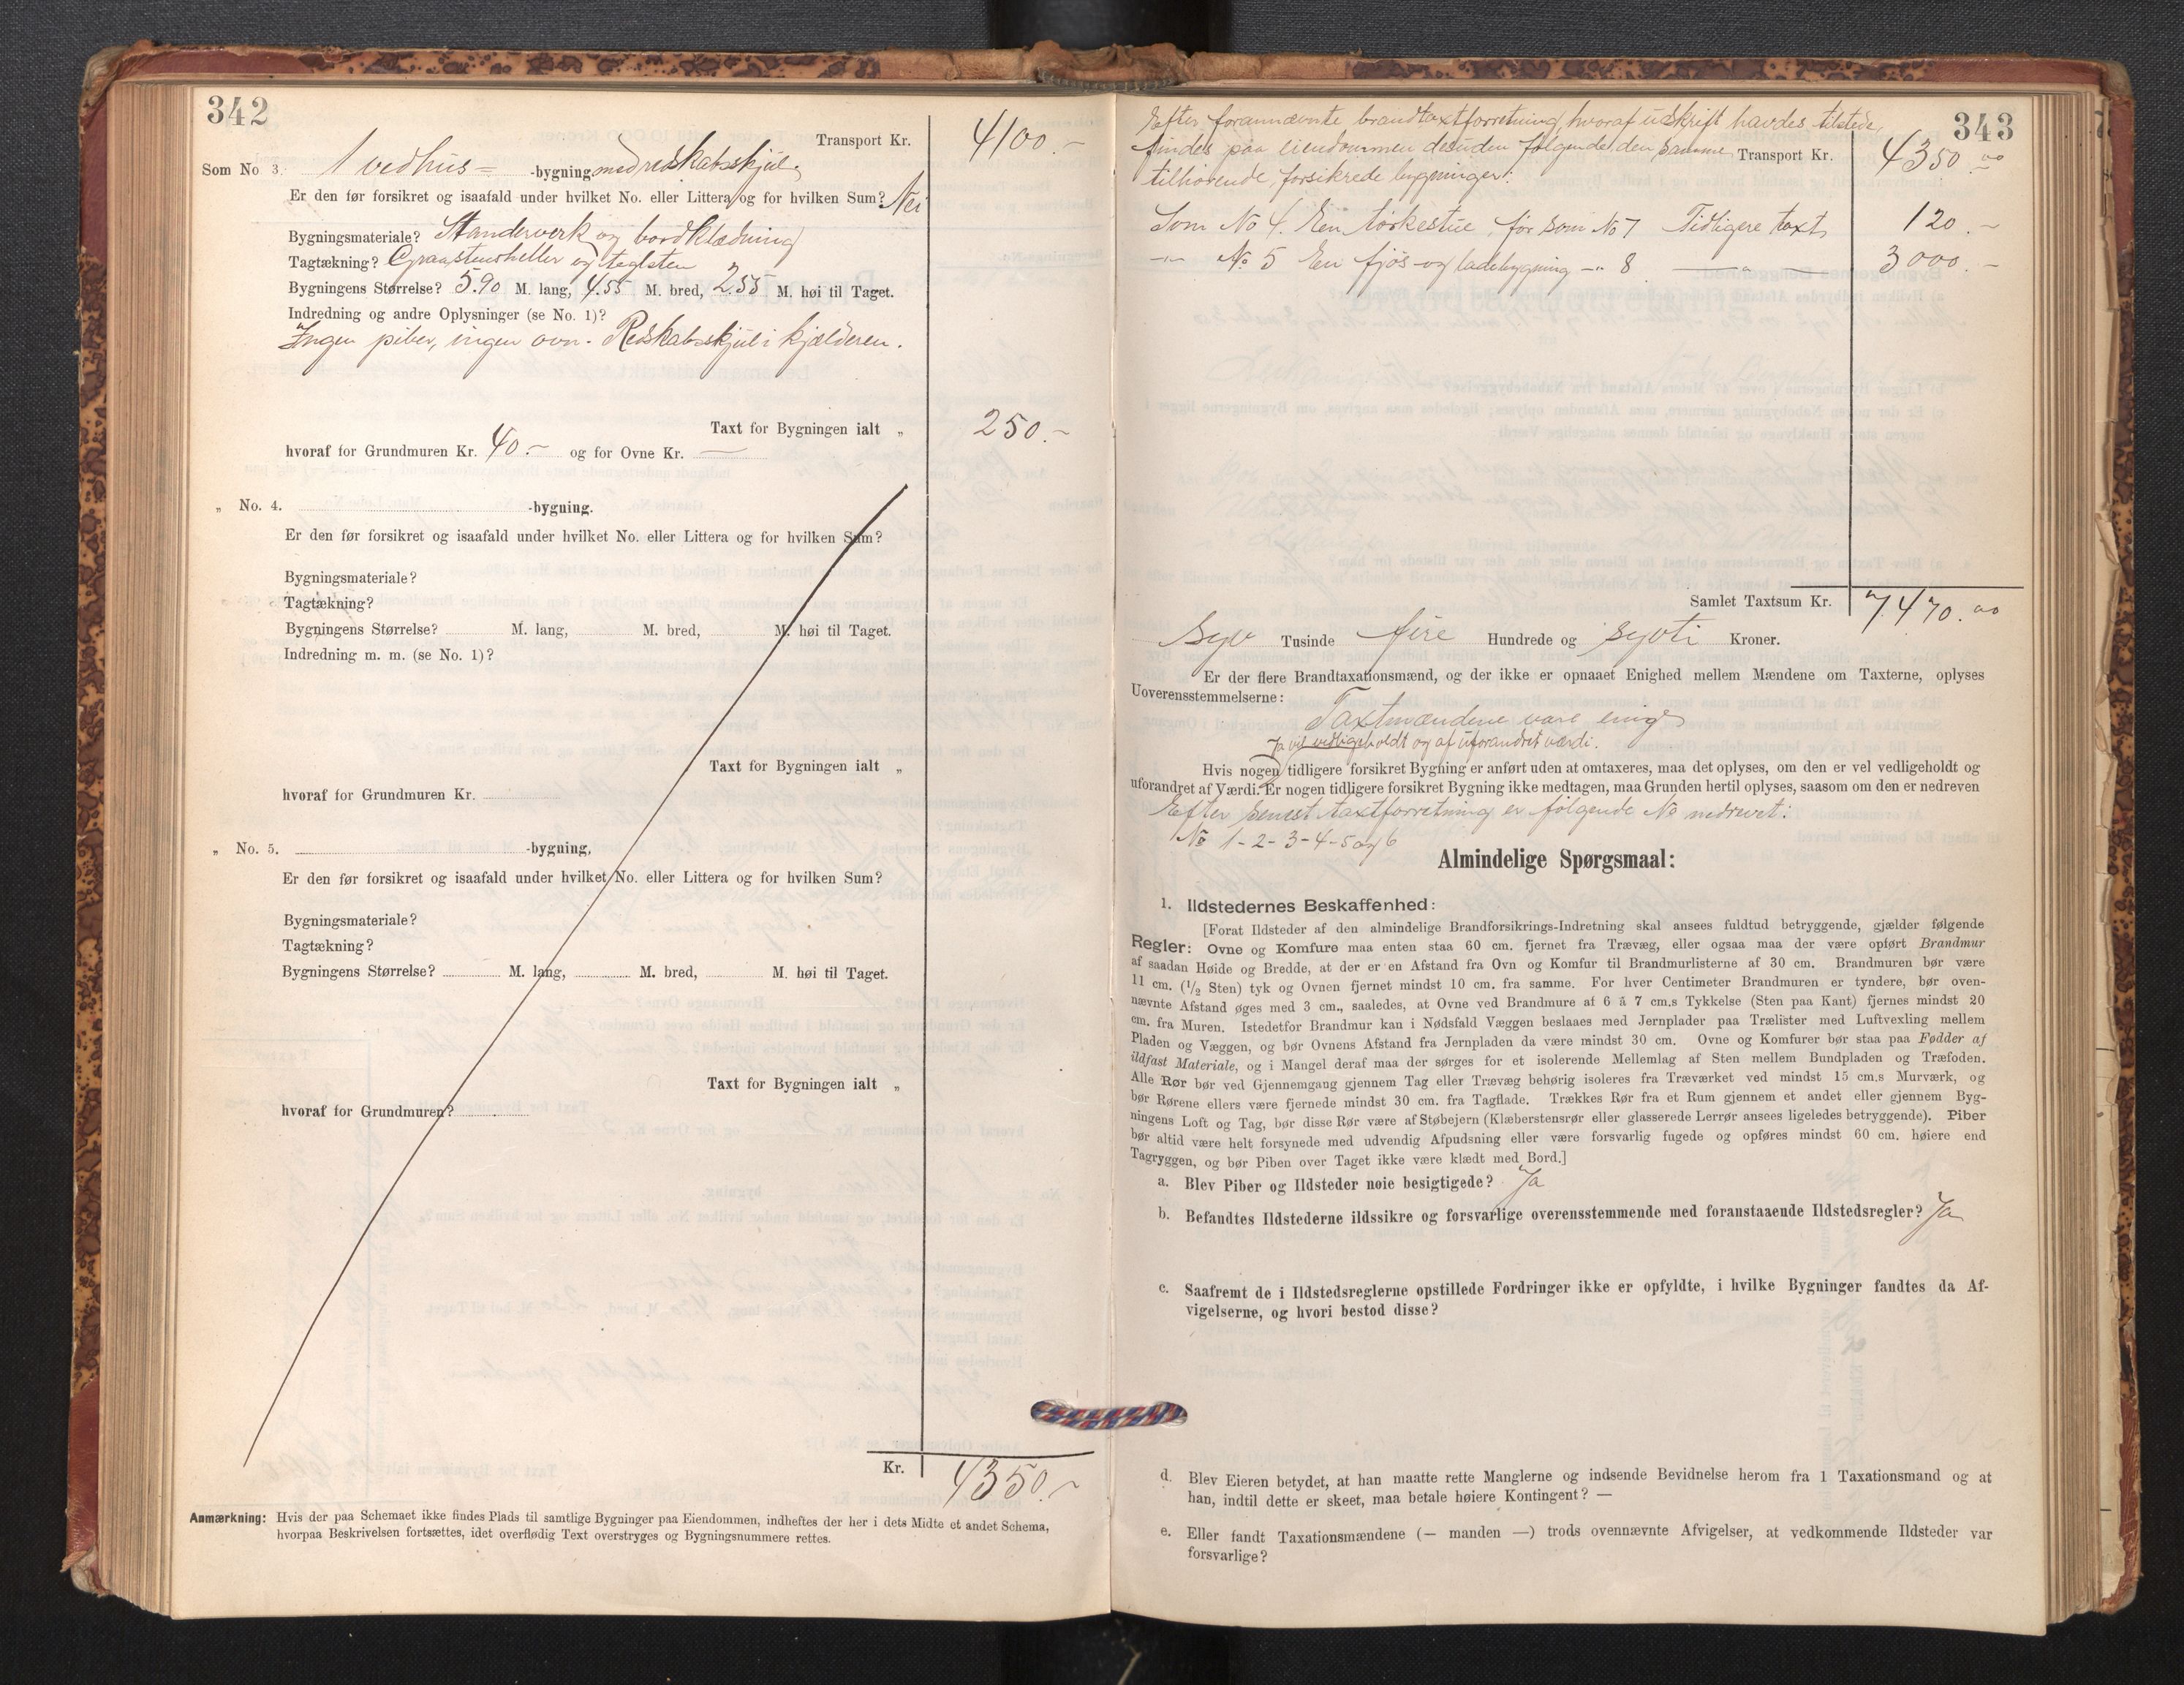 342
Transport Kr. 4100.-
Som No 3. 1 vedhus= -bygning med redskabsskjul.
Er den før forsikret og isaafald under hvilket No. eller Littera og for hvilken Sum? Nei
Bygningsmateriale? Standerverk og bordklædning
Tagtækning? Graastensheller og taglsten
Bygningens Størrelse? 5.90 M. lang, 4.55 M. bred, 2.55 M. høi til Taget.
Indredning og andre Oplysninger (se No. 1)?
Ingen piber, ingen ovn. Redskabsskjul i kjælderen.
Taxt for Bygningen ialt „ 250.-
hvoraf for Grundmuren Kr. 40.- og for Ovne Kr. —
„ No. 4. -bygning.
Er den før forsikret og isaafald under hvilket No. eller Littera og for hvilken Sum?
Bygningsmateriale?
Tagtækning?
Bygningens Størrelse? M. lang, M. bred, M. høi til Taget.
Indredning m. m. (se No. 1)?
Taxt for Bygningen ialt „
hvoraf for Grundmuren Kr.
„ No. 5. -bygning,
Er den før forsikret og isaafald under hvilket No. eller Littera og for hvilken Sum?
Bygningsmateriale?
Tagtækning?
Bygningens Størrelse? M. lang, M. bred, M. høi til Taget.
Taxt for Bygningen ialt „
hvoraf for Grundmuren?
Kr. 4350.-
Anmærkning: Hvis der paa Schemaet ikke findes Plads til samtlige Bygninger paa Eiendommen, indheftes der her i dets Midte et andet Schema,
hvorpaa Beskrivelsen fortsættes, idet overflødig Text overstryges og Bygningsnummere rettes.
343
Efter forannævnte brandtaxtforretning, hvoraf udskrift havdes tilstede,
findes paa eiendommen desuden følgende, den samme Transport Kr. 4350.00
tilhørende, forsikrede bygninger:
Som No 4. En tørkestue, før som No 7 Tidligere taxt 120.-
-"- No 5 En fjøs- og ladebygning -"- 8 —"— 3000.-
Samlet Taxtsum Kr. 7.470.00
Syv Tusinde fire Hundrede og sytti Kroner.
Er der flere Brandtaxationsmænd, og der ikke er opnaaet Enighed mellem Mændene om Taxterne, oplyses
Uoverensstemmelserne:
Taxtmændene vare enige
Ja vel vedligeholdt og af uforandret værdi.
Hvis nogen tidligere forsikret Bygning er anført uden at omtaxeres, maa det oplyses, om den er vel vedligeholdt og
uforandret af Værdi. Er nogen tidligere forsikret Bygning ikke medtagen, maa Grunden hertil oplyses, saasom om den er nedreven
Efter senest taxtforretning er følgende No nedrevet:
No 1-2-3-4-5 og 6
Almindelige Spørgsmaal:
1. Ildstedernes Beskaffenhed:
[Forat Ildsteder af den almindelige Brandforsikrings-Indretning skal ansees fuldtud betryggende, gjælder følgende
Regler: Ovne og Komfure maa enten staa 60 cm. fjernet fra Trævæg, eller ogsaa maa der være opført Brandmur
af saadan Høide og Bredde, at der er en Afstand fra Ovn og Komfur til Brandmurlisterne af 30 cm. Brandmuren bør være
11 cm. (1/2 Sten) tyk og Ovnen fjernet mindst 10 cm. fra samme. For hver Centimeter Brandmuren er tyndere, bør oven-
nævnte Afstand øges med 3 cm., saaledes, at Ovne ved Brandmure af 6 à 7 cm.s Tykkelse (Sten paa Kant) fjernes mindst 20
cm. fra Muren. Istedetfor Brandmur kan i Nødsfald Væggen beslaaes med Jernplader paa Trælister med Luftvexling mellem
Pladen og Væggen, og bør Ovnens Afstand fra Jernpladen da være mindst 30 cm. Ovne og Komfurer bør staa paa Fødder af
ildfast Materiale, og i Mangel deraf maa der sørges for et isolerende Mellemlag af Sten mellem Bundpladen og Træfoden.
Alle Rør bør ved Gjennemgang gjennem Tag eller Trævæg behørig isoleres fra Træværket ved mindst 15 cm.s Murværk, og
bør Rørene ellers være fjernede mindst 30 cm. fra Tagflade. Trækkes Rør fra et Rum gjennem et andet eller gjennem Byg-
ningens Loft og Tag, bør disse Rør være af Støbejern (Klæberstensrør eller glasserede Lerrør ansees ligeledes betryggende). Piber
bør altid være helt forsynede med udvendig Afpudsning eller være forsvarlig fugede og opføres mindst 60 cm. høiere end
Tagryggen, og bør Piben over Taget ikke være klædt med Bord.]
a. Blev Piber og Ildsteder nøie besigtigede? Ja
b. Befandtes Ildstederne ildssikre og forsvarlige overensstemmende med foranstaaende Ildstedsregler? Ja
c. Saafremt de i Ildstedsreglerne opstillede Fordringer ikke er opfyldte, i hvilke Bygninger fandtes da Af-
vigelserne, og hvori bestod disse?
d. Blev Eieren betydet, at han maatte rette Manglerne og indsende Bevidnelse herom fra 1 Taxationsmand og at
han, indtil dette er skeet, maa betale høiere Kontingent? —
e. Eller fandt Taxationsmændene (— manden —) trods ovennævnte Afvigelser, at vedkommende Ildsteder var
forsvarlige?